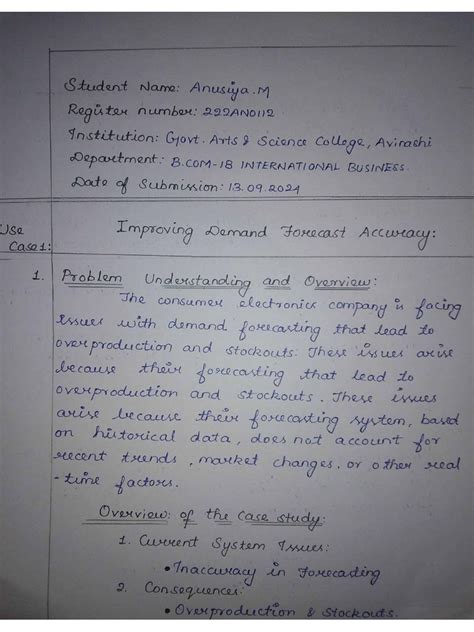 Student Name: Anusiya.M
Register number: 222AN0112
Institution: Govt. Arts & Science College, Avinashi
Department: B.COM-IB INTERNATIONAL BUSINESS.
Date of Submission: 13.09.2024
Use Case 1:
Improving Demand Forecast Accuracy:
1. Problem Understanding and Overview:
The consumer electronics company is facing
issues with demand forecasting that lead to
overproduction and stockouts. These issues arise
because their forecasting that lead to
overproduction and stockouts. These issues
arise because their forecasting system, based
on historical data, does not account for
recent trends, market changes, or other real
-time factors.
Overview: of the case study:
1. Current System Issues:
• Inaccuracy in Forecasting
2. Consequences:
• Overproduction & Stockouts.